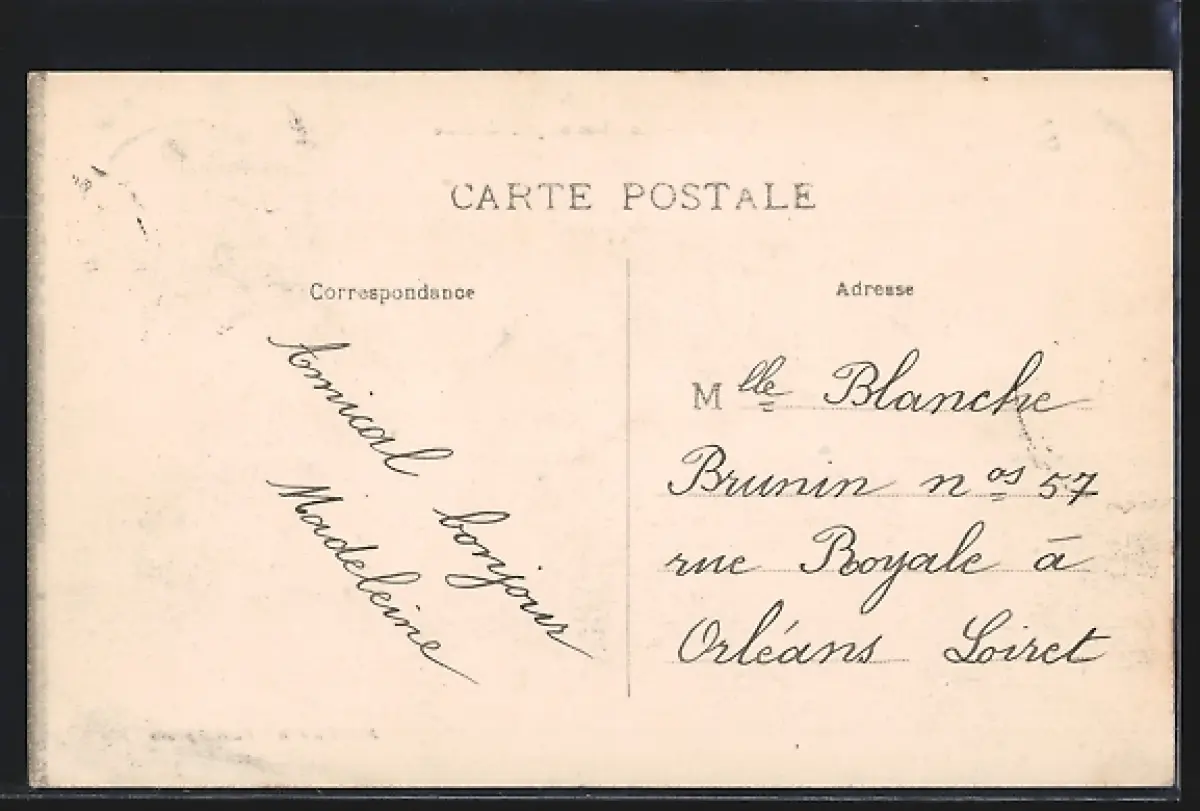 CARTE POSTALE
Correspondance
Amical bonjour
Madeleine
Adresse
Mlle Blanche
Brunin nos 57
rue Royale à
Orléans Loiret